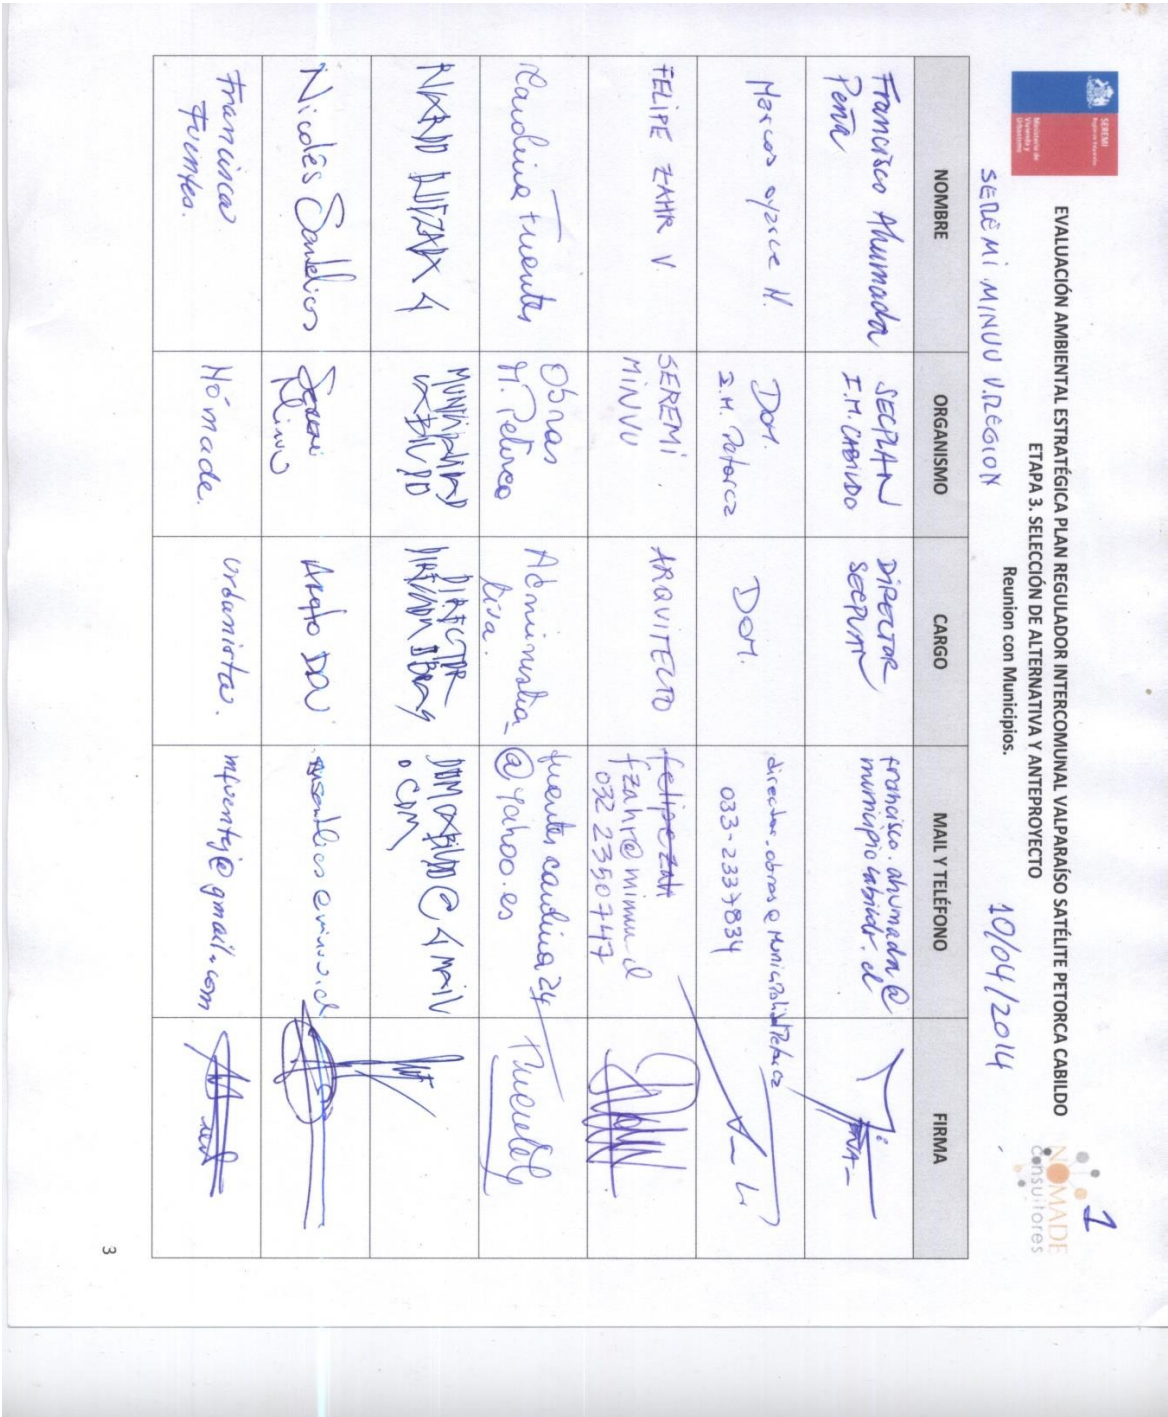 SEREMI
Región de Valparaíso
Ministerio de
Vivienda y
Urbanismo
1
NOMADE
consultores
EVALUACIÓN AMBIENTAL ESTRATÉGICA PLAN REGULADOR INTERCOMUNAL VALPARAÍSO SATÉLITE PETORCA CABILDO
ETAPA 3. SELECCIÓN DE ALTERNATIVA Y ANTEPROYECTO
Reunion con Municipios.
SEREMI MINVU V.REGION
10/04/2014
NOMBRE
ORGANISMO
CARGO
MAIL Y TELÉFONO
FIRMA
Francisco Ahumada
Peña
SECPLAN
I.M. CABILDO
DIRECTOR
SECPLAN
francisco.ahumada@
municipiocabildo.cl
Marcos N.
DOM.
I.M. Petorca
DOM.
033-2337834
FELIPE ZAHR V.
SEREMI.
MINVU
ARQUITECTO
fzahr@minvu.cl
032 2350747
Carolina Fuentes
Obras
M. Petorca
Administra-
tiva.
fuentescarolina24
@yahoo.es
MUNICIPALIDAD
CABILDO
DIRECTOR
DIRECCION OBRAS
DOMCABILDO@GMAIL
.COM
Nicolás
Seremi
Minvu
DDU
Francisca
Fuentes.
Nómade.
Urbanista.
mfuentej@gmail.com
3